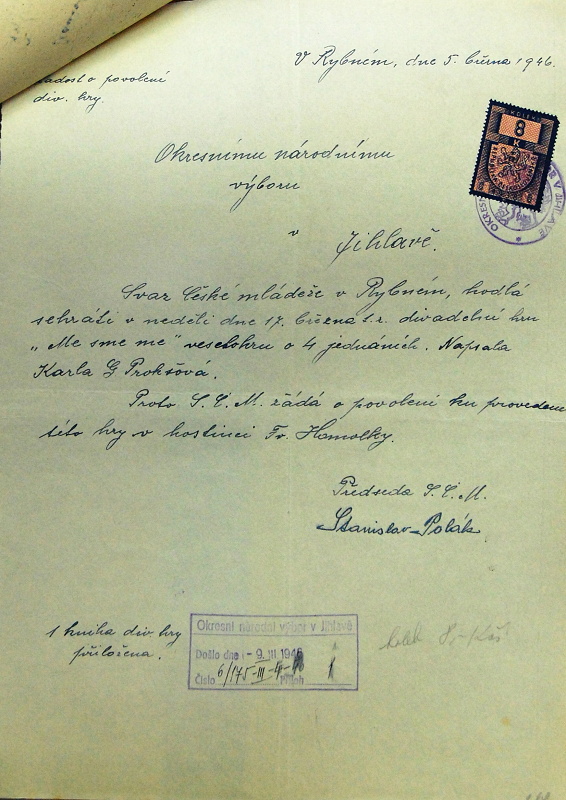 V Rybném, dne 5. března 1946.
žádost o povolení
div. hry.
KOLEK
8
K
OKRESNÍ V JIHLAVĚ
Okresnímu národnímu
výboru
v
Jihlavě.
Svaz České mládeže v Rybném, hodlá
sehráti v neděli dne 17. března t.r. divadelní hru
„Me sme me" veselohru o 4 jednáních. Napsala
Karla G Prokšová.
Proto S. Č. M. žádá o povolení ku provedení
této hry v hostinci Fr. Homolky.
Předseda S. Č. M.
Stanislav Polák
1 kniha div. hry
přiložena.
Okresní národní výbor v Jihlavě
Došlo dne: - 9. III 1946
Číslo 6/175-III-4- Příloh 1
kolek